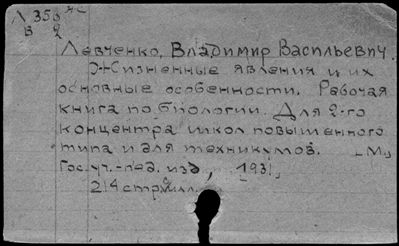 Л 356
В 2
Левченко, Владимир Васильевич.
Жизненные явления и их
основные особенности. Рабочая
книга по биологии. Для 2-го
концентра школ повышенного
типа и для техникумов. _М.,
Гос. уч.-пед. изд., 1931.
214 стр. илл.